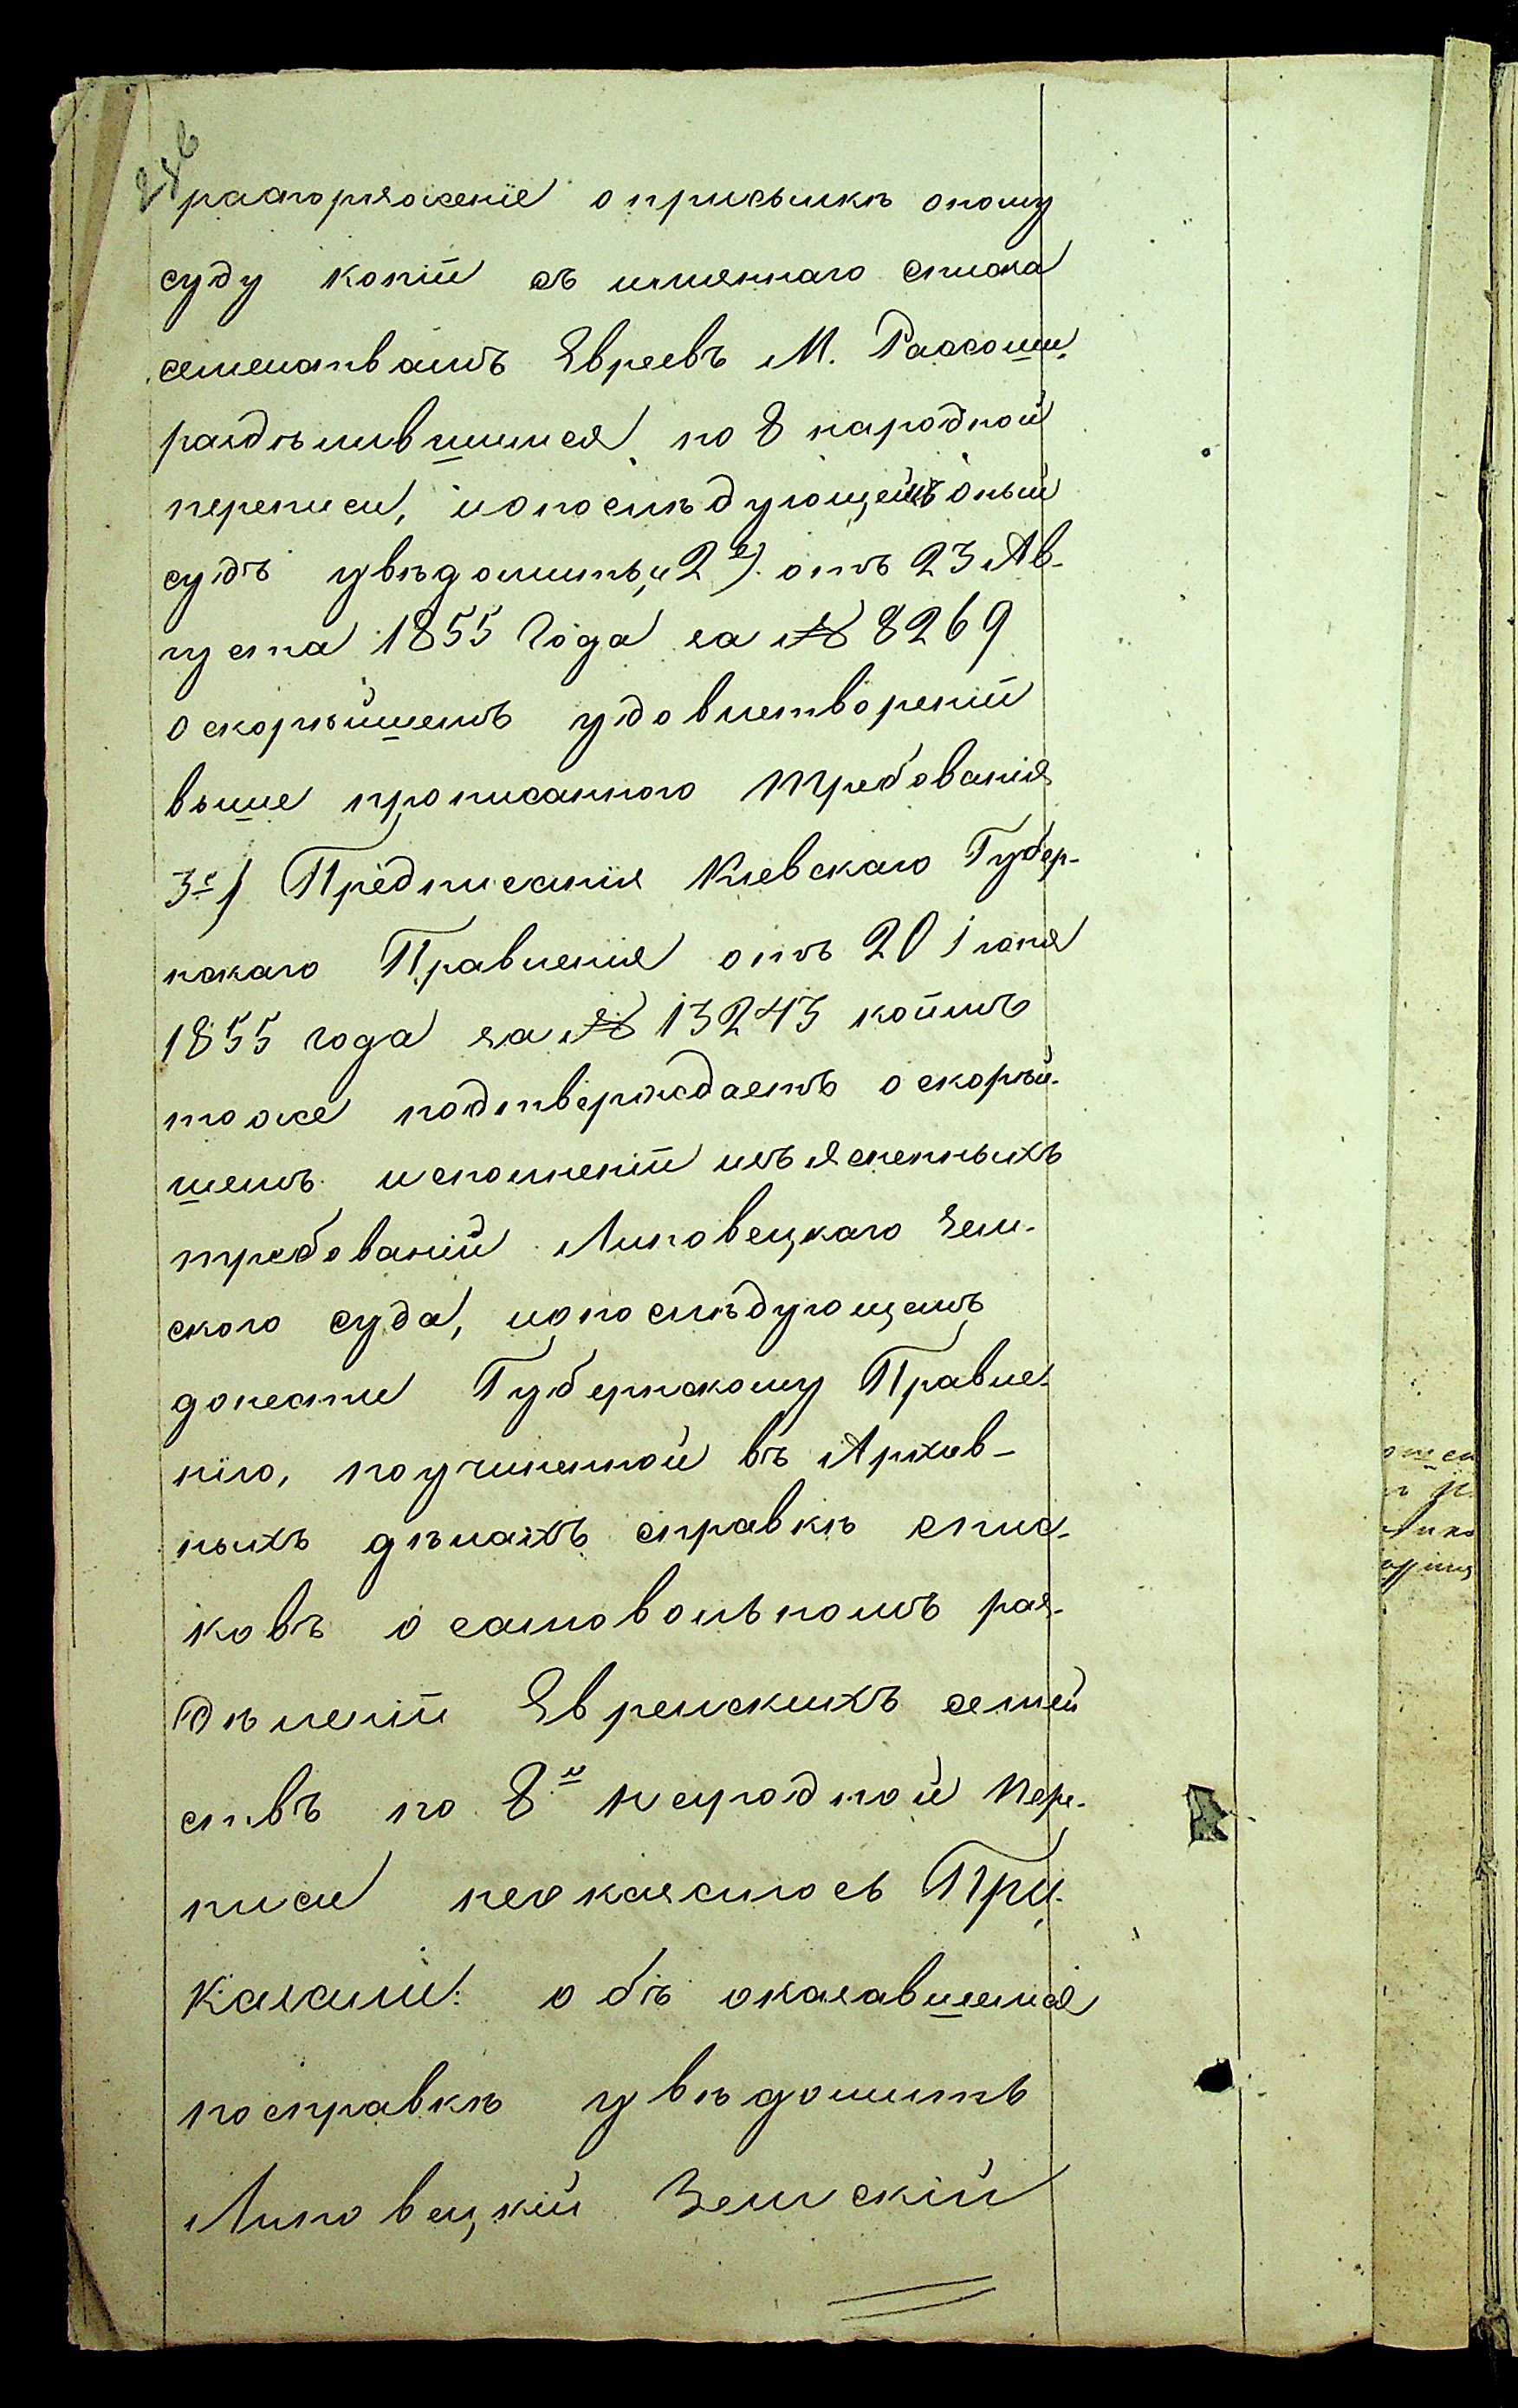 распоряженіе оприсылкѣ оному
суду копіи съ имяннаго списка
семействамъ Евреевъ М. Рассоши,
раздѣлившимся по 8 народной
переписи, ипопослѣдующемъ оный
судъ увѣдомить, и 2е) отъ 23 Ав-
густа 1855 Года за № 8269
оскорѣйшемъ удовлетвореніи
выше прописанного требованія
3е) Предписанія Кіевскаго Губер-
нскаго Правленія отъ 20 Іюня
1855 года за № 13243 коимъ
тоже подтверждаетъ оскорѣй-
шемъ исполненіи изъясненныхъ
требованій Липовецкаго Зем-
ского суда, ипопослѣдующемъ
донести Губернскому Правле-
нію, поучиненной въ Архив-
ныхъ дѣлахъ справкѣ спис-
ковъ о самовольномъ раз-
дѣленіи Еврейскихъ семей
ствъ по 8й народной пере-
писи неоказалось При-
казали: объ оказавшемся
посправкѣ увѣдомить
Липовецкій Земскій